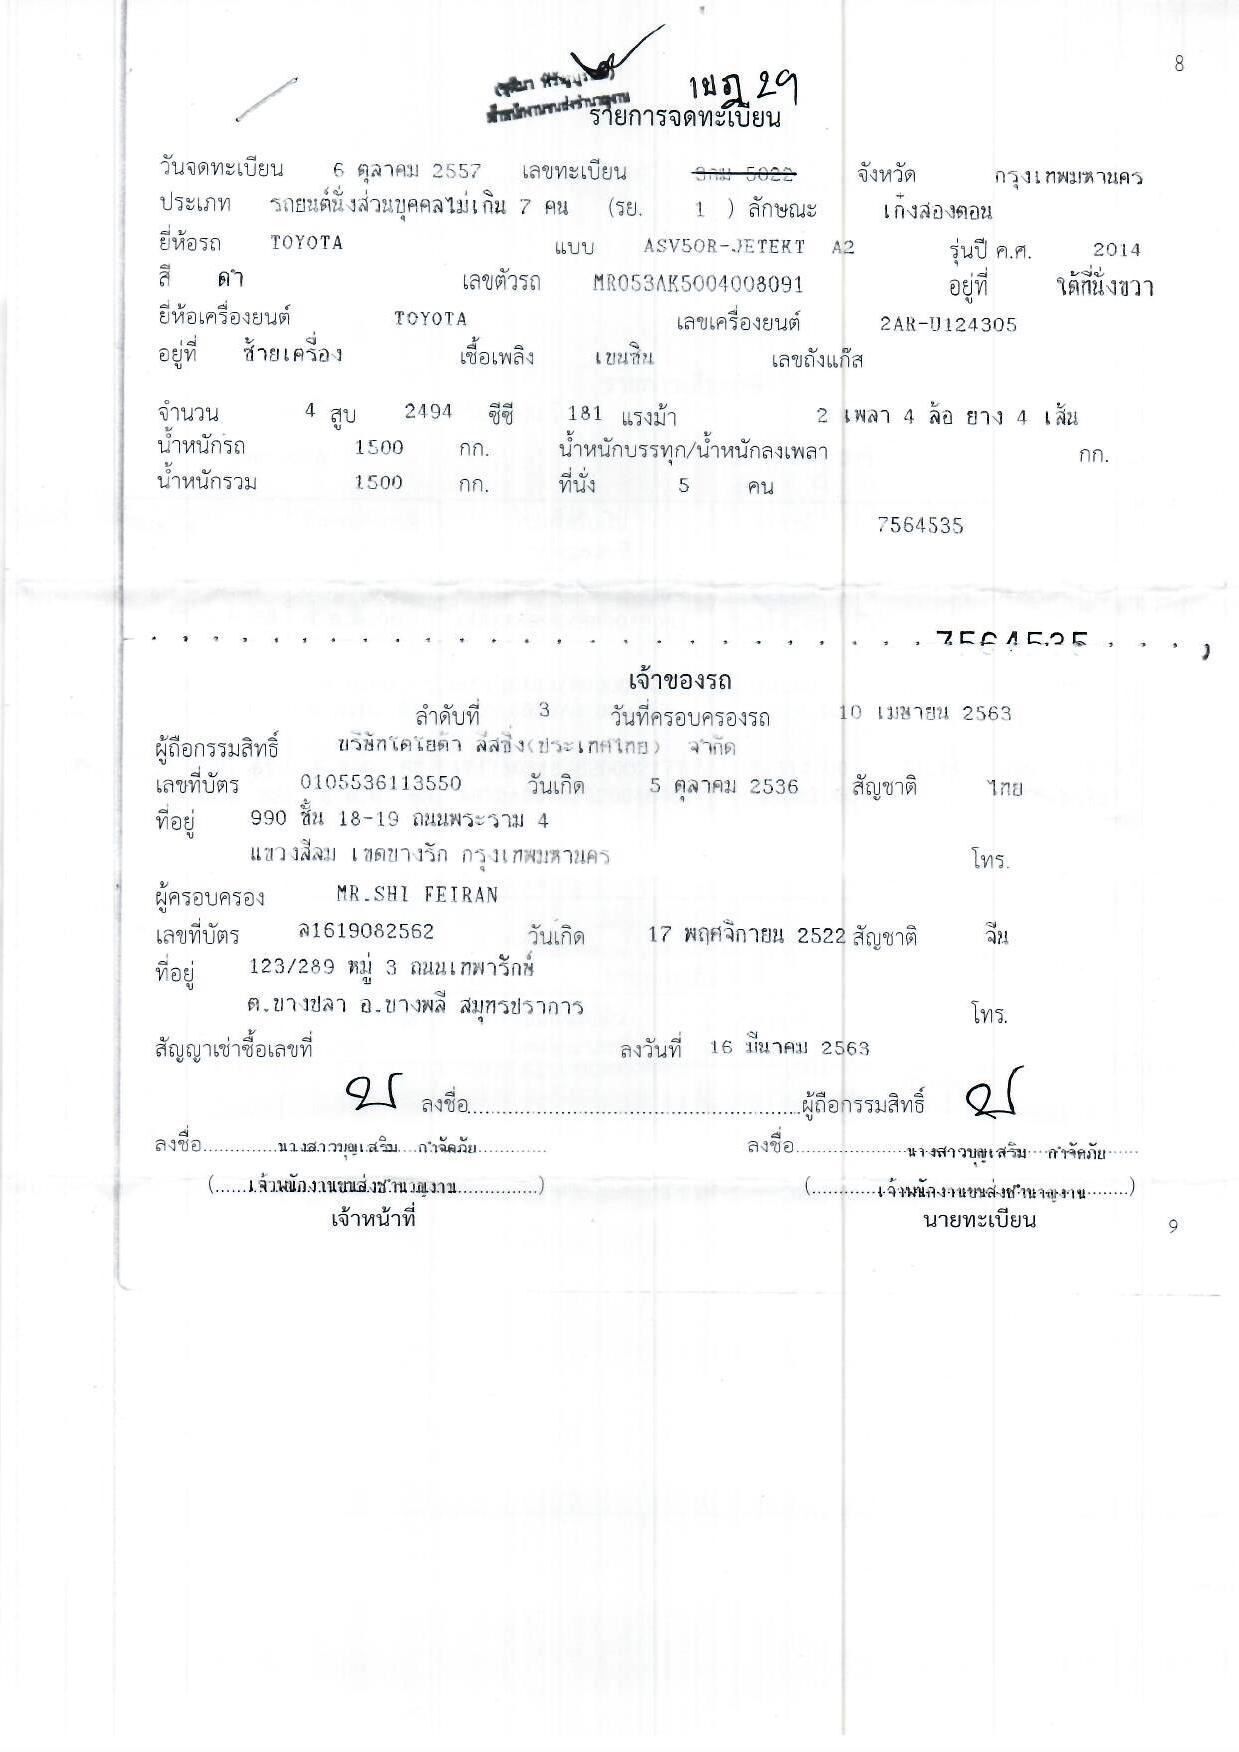 8
1ขฎ 29
รายการจดทะเบียน
วันจดทะเบียน 6 ตุลาคม 2557 เลขทะเบียน 3กม 5022 จังหวัด กรุงเทพมหานคร
ประเภท รถยนต์นั่งส่วนบุคคลไม่เกิน 7 คน (รย. 1 ) ลักษณะ เก๋งสองตอน
ยี่ห้อรถ TOYOTA แบบ ASV50R-JETEKT A2 รุ่นปี ค.ศ. 2014
สี ดำ เลขตัวรถ MR053AK5004008091 อยู่ที่ ใต้ที่นั่งขวา
ยี่ห้อเครื่องยนต์ TOYOTA เลขเครื่องยนต์ 2AR-U124305
อยู่ที่ ซ้ายเครื่อง เชื้อเพลิง เบนซิน เลขถังแก๊ส
จำนวน 4 สูบ 2494 ซีซี 181 แรงม้า 2 เพลา 4 ล้อ ยาง 4 เส้น
น้ำหนักรถ 1500 กก. น้ำหนักบรรทุก/น้ำหนักลงเพลา กก.
น้ำหนักรวม 1500 กก. ที่นั่ง 5 คน
7564535
7564535
เจ้าของรถ
ลำดับที่ 3 วันที่ครอบครองรถ 10 เมษายน 2563
ผู้ถือกรรมสิทธิ์ บริษัทโตโยต้า ลีสซิ่ง(ประเทศไทย) จำกัด
เลขที่บัตร 0105536113550 วันเกิด 5 ตุลาคม 2536 สัญชาติ ไทย
ที่อยู่ 990 ชั้น 18-19 ถนนพระราม 4
แขวงสีลม เขตบางรัก กรุงเทพมหานคร โทร.
ผู้ครอบครอง MR.SHI FEIRAN
เลขที่บัตร ล1619082562 วันเกิด 17 พฤศจิกายน 2522 สัญชาติ จีน
ที่อยู่ 123/289 หมู่ 3 ถนนเทพารักษ์
ต.บางปลา อ.บางพลี สมุทรปราการ โทร.
สัญญาเช่าซื้อเลขที่ ลงวันที่ 16 มีนาคม 2563
ลงชื่อ........................................ผู้ถือกรรมสิทธิ์
ลงชื่อ.......... นางสาวบุญเสริม กำจัดภัย ลงชื่อ.......... นางสาวบุญเสริม กำจัดภัย
(......เจ้าพนักงานขนส่งชำนาญงาน..........) (..........เจ้าพนักงานขนส่งชำนาญงาน......)
เจ้าหน้าที่ นายทะเบียน
9